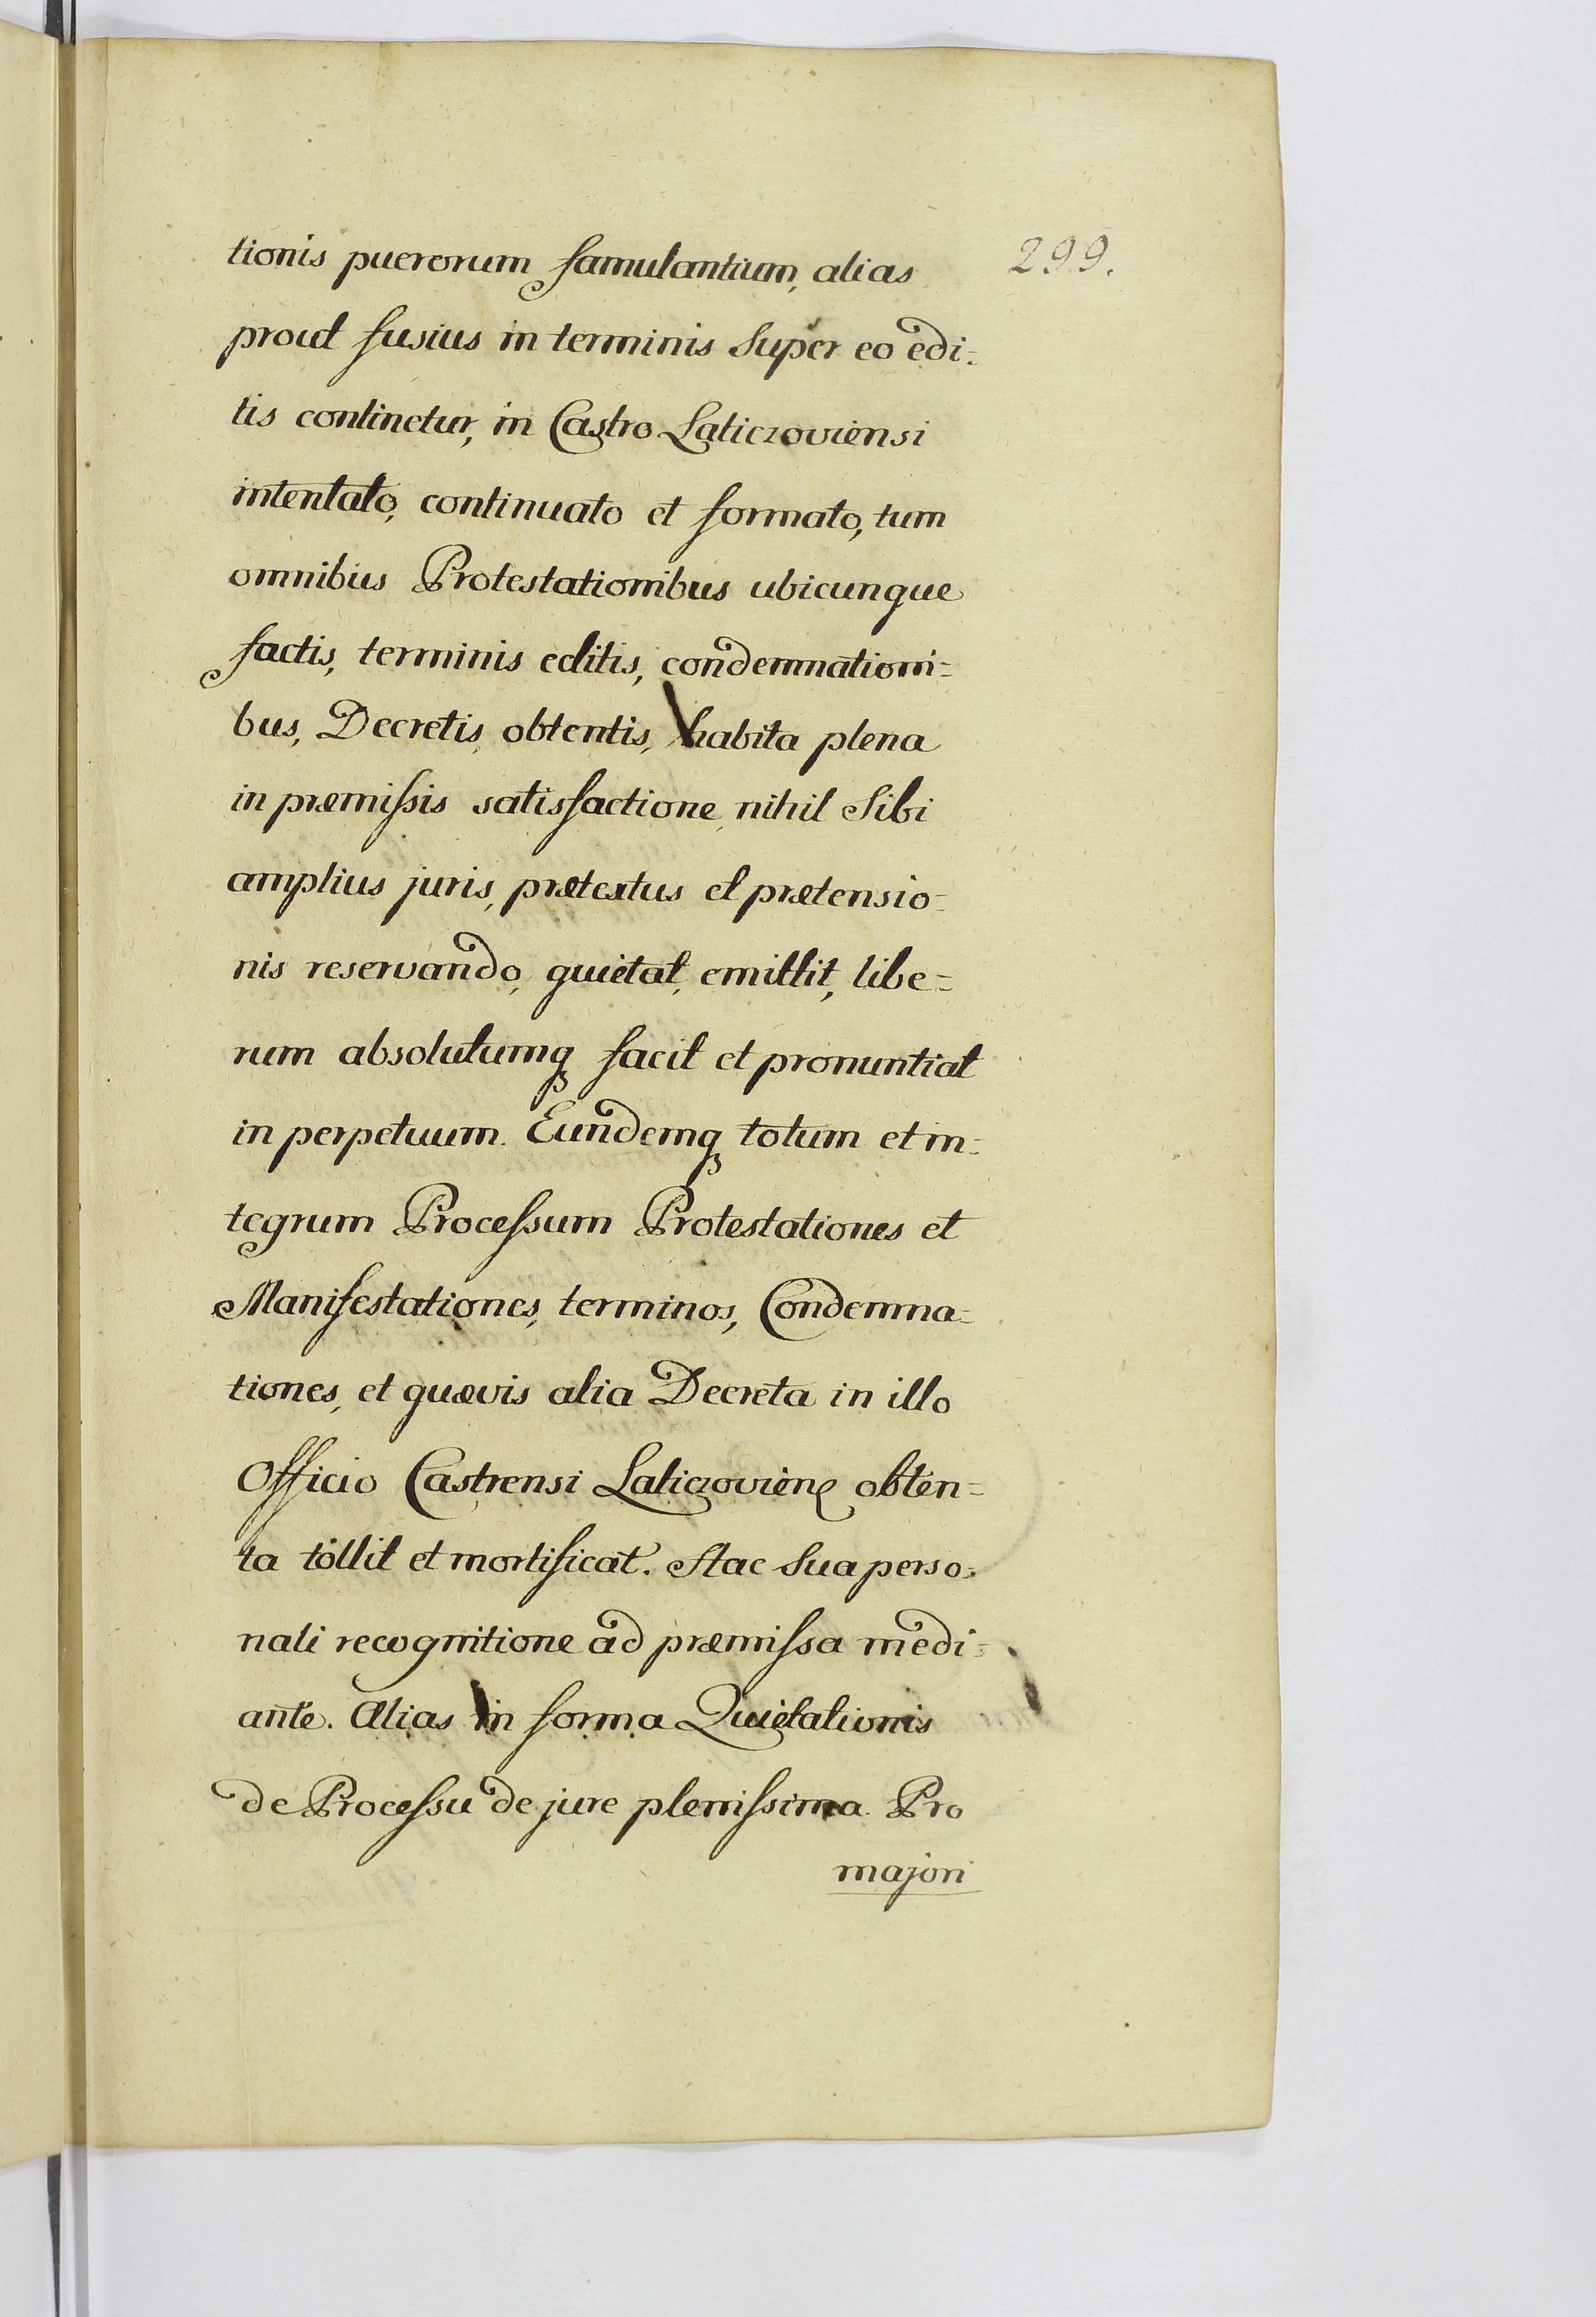 299.
tionis puerorum famulantium, alias
prout fusius in terminis super eo edi=
tis continetur, in Castro Laticzoviensi
intentato, continuato et formato, tum
omnibus Protestationibus ubicunque
factis, terminis editis, condemnationi=
bus, Decretis obtentis, habita plena
in præmiſsis satisfactione, nihil Sibi
amplius juris, prætextus et prætensio=
nis reservando, quietat, emittit, libe=
rum absolutumq facit et pronuntiat
in perpetuum. Eundemq totum et in=
tegrum Proceſsum Protestationes et
Manifestationes, terminos, Condemna=
tiones, et quævis alia Decreta in illo
Officio Castrensi Laticzovien obten=
ta tollit et mortificat. Hac Sua perso=
nali recognitione ad præmiſsa medi=
ante. Alias in forma Quietationis
de Proceſsu de jure pleniſsima. Pro
majori